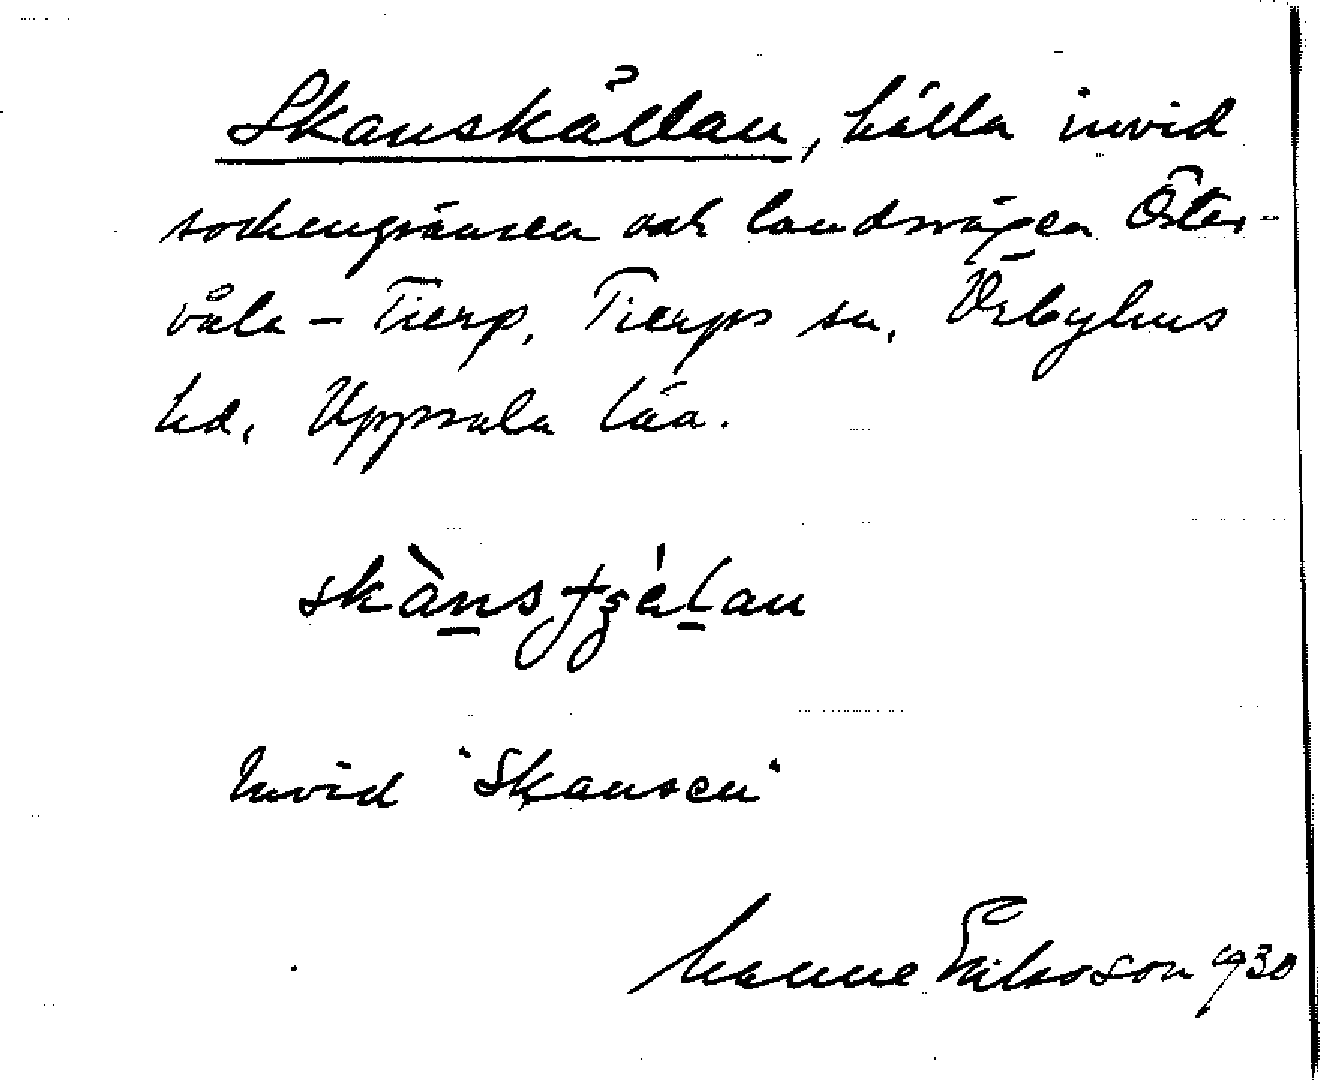 Skanskällan, källa invid
sockengränsen och landsvägen Öster-
våla - Tierp, Tierps sn, Örbyhus
hd, Uppsala län.
Invid "Skansen"
Manne Eriksson 1930